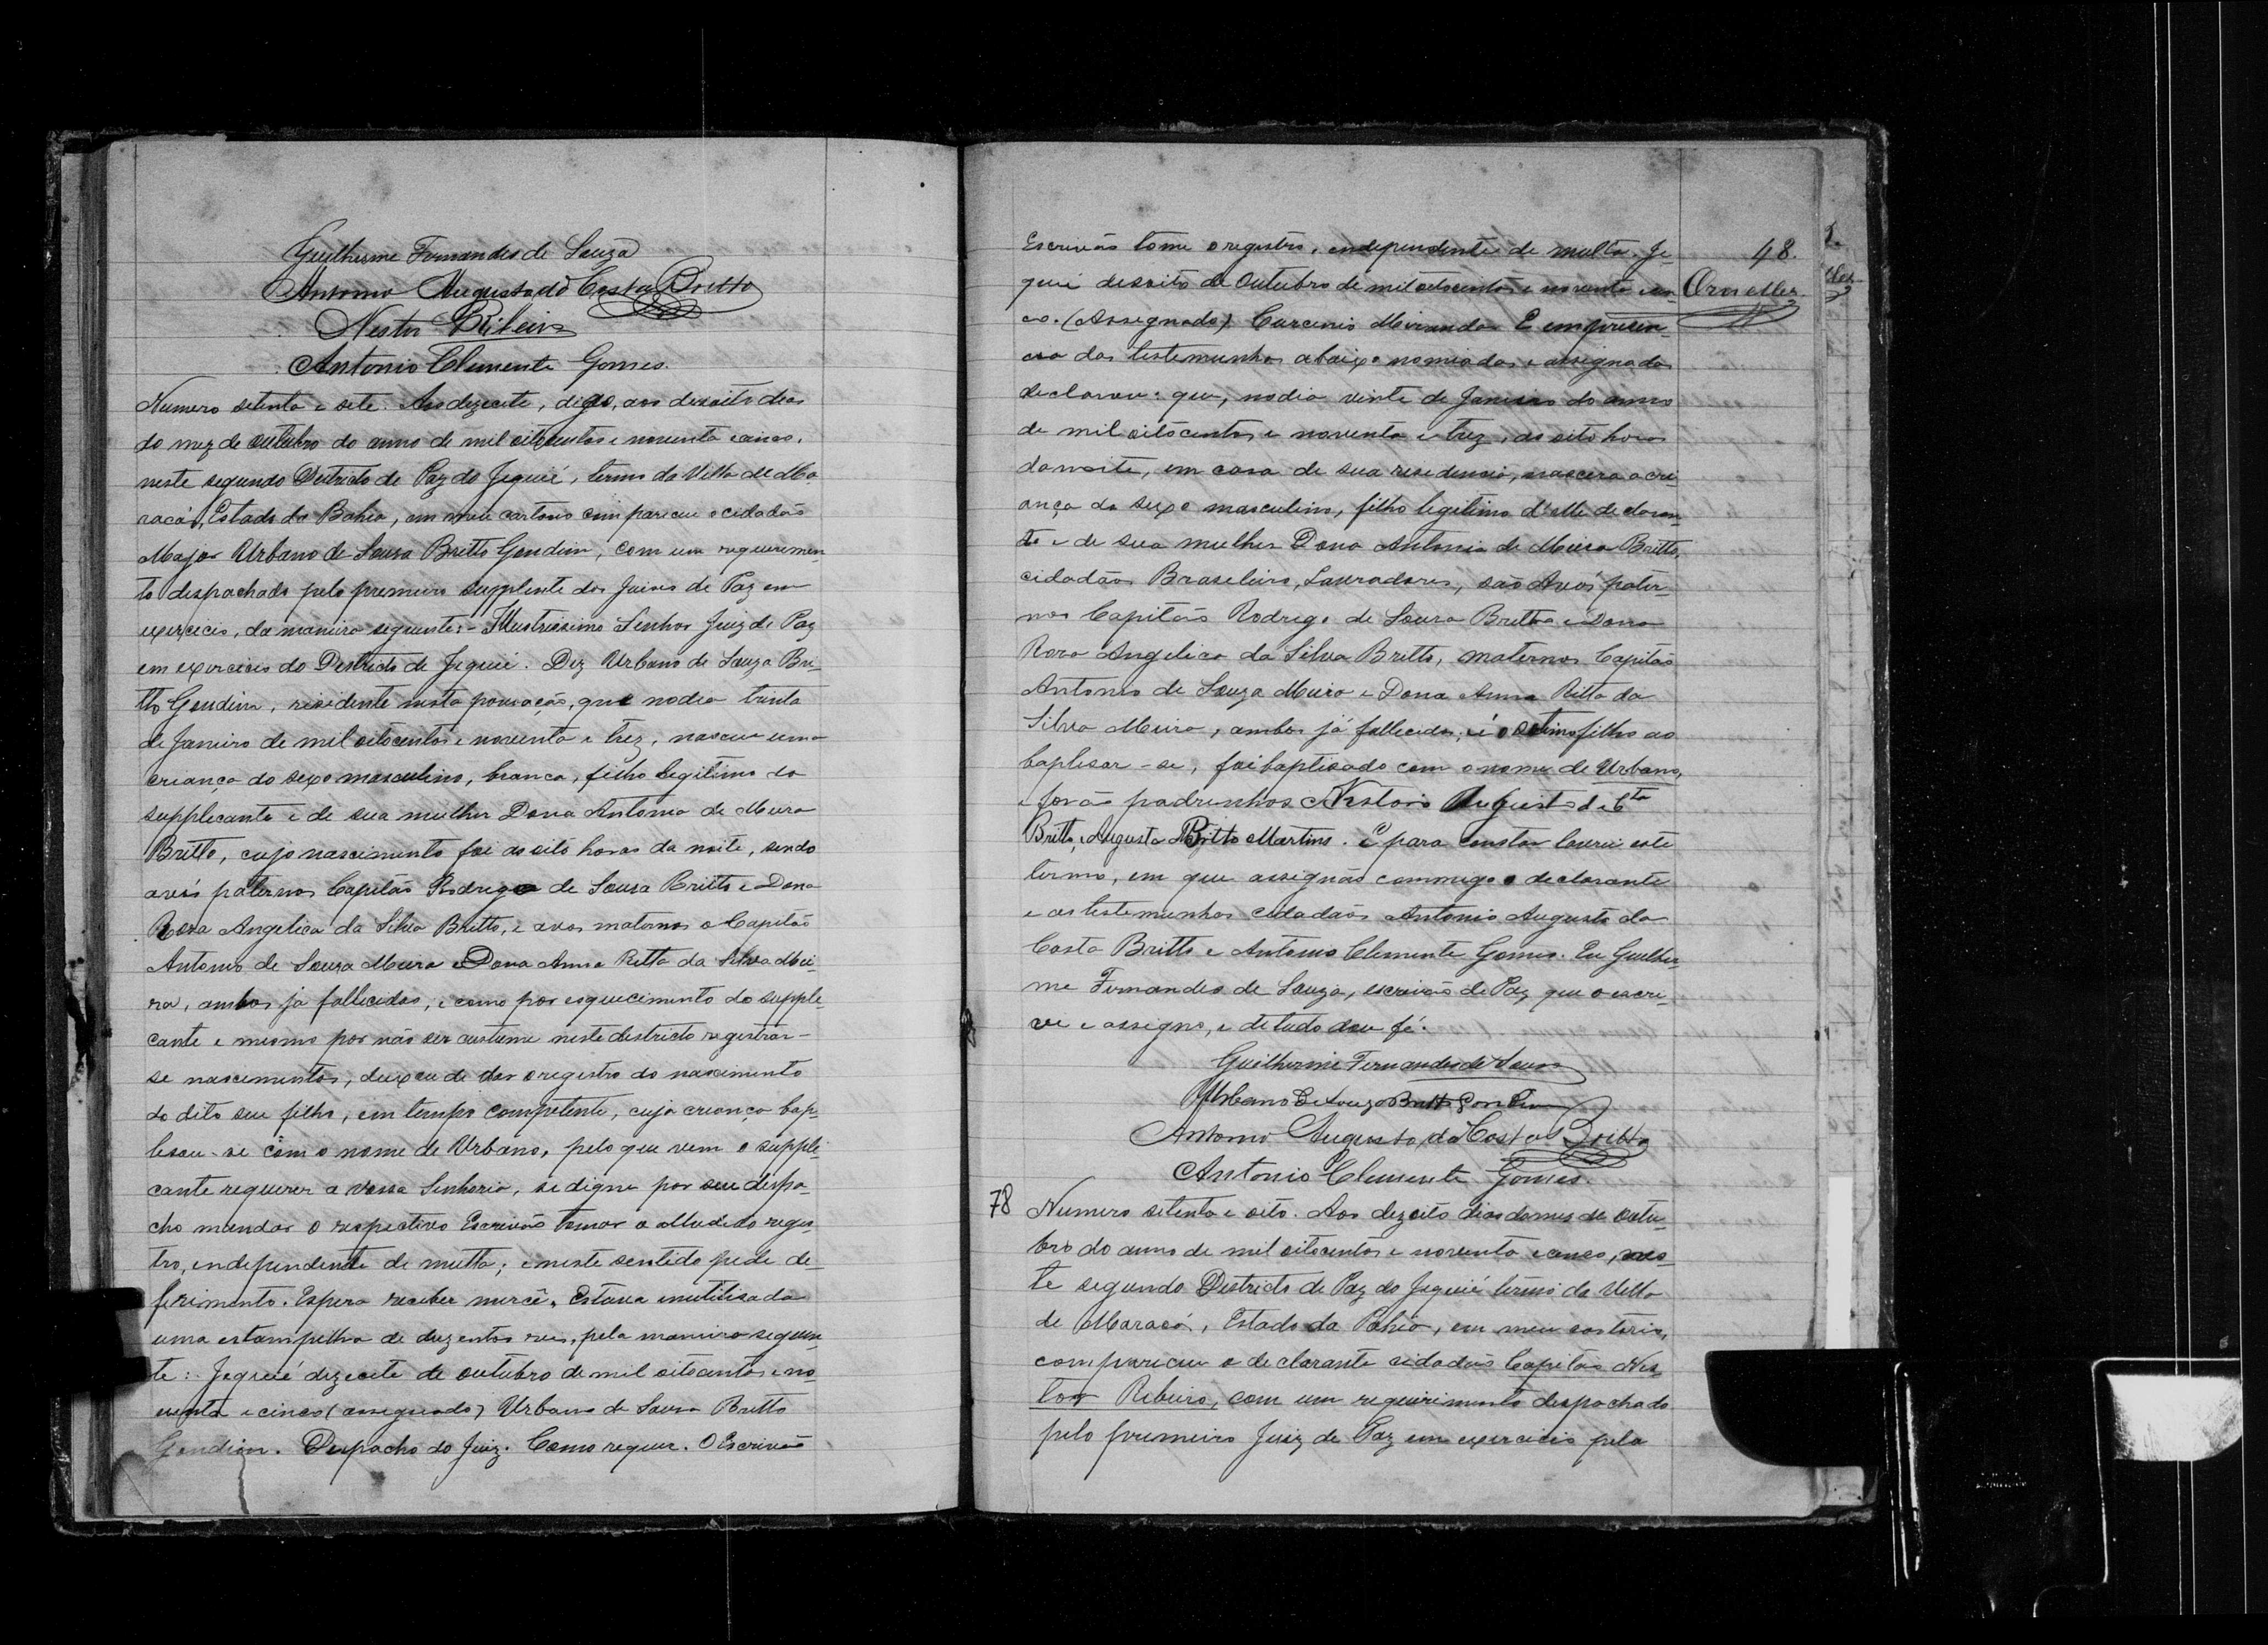 Guilherme Fernandes de Souza
Antonio Augusto da Costa Britto
Nestor Ribeiro
Antonio Clemente Gomes.
Numero setenta e sete. Aos dezecete, digo, aos dezoito dias
do mez de outubro do anno de mil oitocentos e noventa e cinco,
neste segundo Districto de Paz do Jequié, termo da Villa de Ma
racás, Estado da Bahia, em meu cartorio compareceu o cidadão
Major Urbano de Souza Britto Gondim, com um requerimen
to despachado pelo premeiro supplente dos Juizes de Paz em
exercicio, da maneira seguinte: - Illustrissimo Senhor Juiz de Paz
em exercicio do Districto de Jequié. Diz Urbano de Souza Bri-
tto Gondim, residente nesta povoação, que no dia trinta
de Janeiro de mil oitocentos e noventa e trez, nasceu uma
criança do sexo masculino, branca, filho legitimo do
supplicante e de sua mulher Dona Antonia de Meira
Britto, cujo nascimento foi as oito horas da noite, sendo
avós paternos Capitão Rodrigo de Sousa Britto e Dona
Rosa Angelica da Silva Britto, e avos maternos o Capitão
Antonio de Souza Meira e Dona Anna Ritta da Silva Mei-
ra, ambos ja fallecidos, e como por esquecimento do suppli
cante e mesmo por não ser custume neste districto registrar-
se nascimentos, deixou de dar o registro do nascimento
do dito seu filho, em tempo competente, cuja criança bap-
tisou-se com o nome de Urbano, pelo que vem o suppli-
cante requerer a Vossa Senhoria, se digne por seu despa-
cho mandar o respectivo Escrivão tomar o alludido regis-
tro, independente de multa; e neste sentido pede de-
ferimento. Espera receber mercê. Estava inutilisada
uma estampilha de duzentos reis, pela maneira seguin-
te: Jequié dezecete de outubro de mil oitocentos e no-
venta e cinco (assignado) Urbano de Sousa Britto
Gondim. Despacho do Juiz. Como requer. O Escrivão
48.
Escrivão tome o registro, independente de multa. Je-
quié dezoito de Outubro de mil oitocentos e noventa e cin-
co. (Assignado) Miranda. E em presen-
cia das testemunhas abaixo nomeadas e assignadas
declarou: que, no dia vinte de Janeiro do anno
de mil oitocentos e noventa e trez, as oito horas
da noite, em casa de sua residencia, nascera a cri-
ança do sexo masculino, filho legitimo d'elle declaran-
te e de sua mulher Dona Antonia de Meira Britto,
cidadãos Brasileiros, Lavradores, são Avós pater-
nos Capitão Rodrigo de Souza Britto e Dona
Rosa Angelica da Silva Britto, maternos Capitão
Antonio de Souza Meira e Dona Anna Ritta da
Silva Meira, ambos já fallecidos; é o setimo filho ao
baptisar-se, foi baptisado com o nome de Urbano,
e forão padrinhos Nestorio Augusto da Cta
Britto, e Augusta Britto Martins. E para constar lavrei este
termo, em que assignão commigo o declarante
e as testemunhas cidadãos Antonio Augusto da
Costa Britto e Antonio Clemente Gomes. Eu Guilher-
me Fernandes de Souza, escrivão de Paz que o escre-
vi e assigno, e de tudo dou fé.
Guilherme Fernandes de Souza
Urbano de Souza Britto Gondim
Antonio Augusto da Costa Britto
Antonio Clemente Gomes.
78 Numero setenta e oito. Aos dezoito dias do mez de outu-
bro do anno de mil oitocentos e noventa e cinco, nes-
te segundo Districto de Paz do Jequié termo da Villa
de Maracás, Estado da Bahia, em meu cartorio,
compareceu o declarante cidadão Capitão Nes
tor Ribeiro, com um requirimento despachado
pelo premeiro Juiz de Paz em exercicio pela